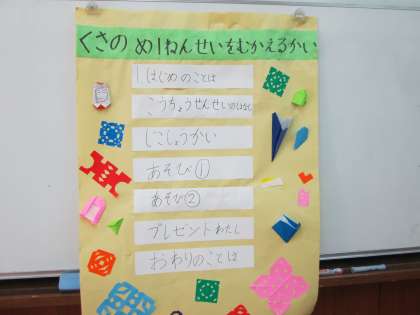 くさの め1ねんせいをむかえるかい
1はじめのことば
こうちょうせんせいのはなし
じこしょうかい
あそび①
あそび②
プレゼントわたし
おわりのことば